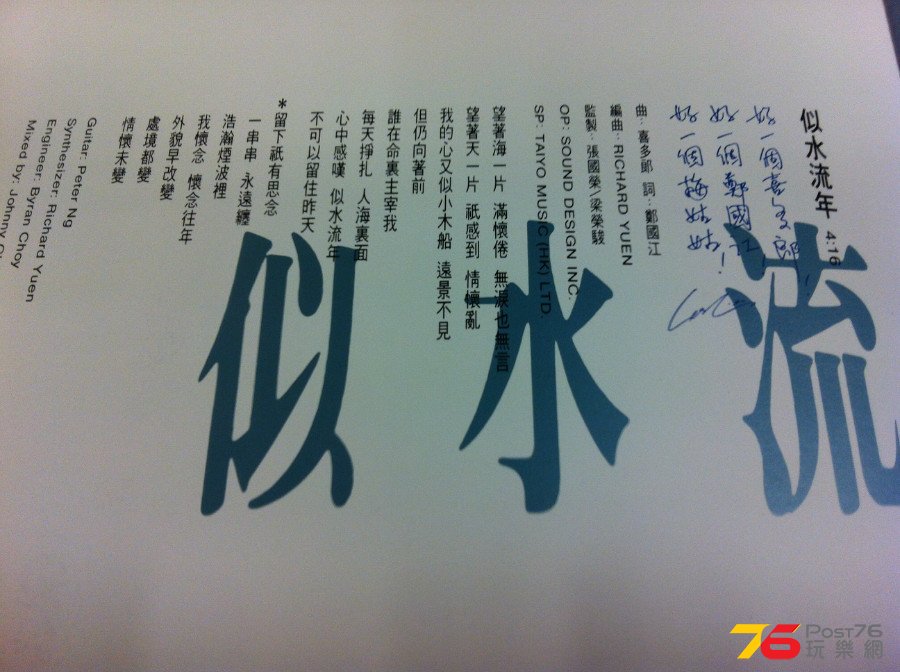 似水流年 4:16
好一個喜多郎！
好一個鄭國江！
好一個梅姑姑！
曲：喜多郎 詞：鄭國江
編曲：RICHARD YUEN
監製：張國榮／梁榮駿
OP: SOUND DESIGN INC.
SP: TAIYO MUSIC (HK) LTD.
望著海一片 滿懷倦 無淚也無言
望著天一片 祇感到 情懷亂
我的心又似小木船 遠景不見
但仍向著前
誰在命裏主宰我
每天掙扎 人海裏面
心中感嘆 似水流年
不可以留住昨天
*留下祇有思念
一串串 永遠纏
浩瀚煙波裡
我懷念 懷念往年
外貌早改變
處境都變
情懷未變
Guitar: Peter Ng
Synthesizer: Richard Yuen
Engineer: Byran Choy
Mixed by: Johnny
似水流
76 POST76
玩樂網